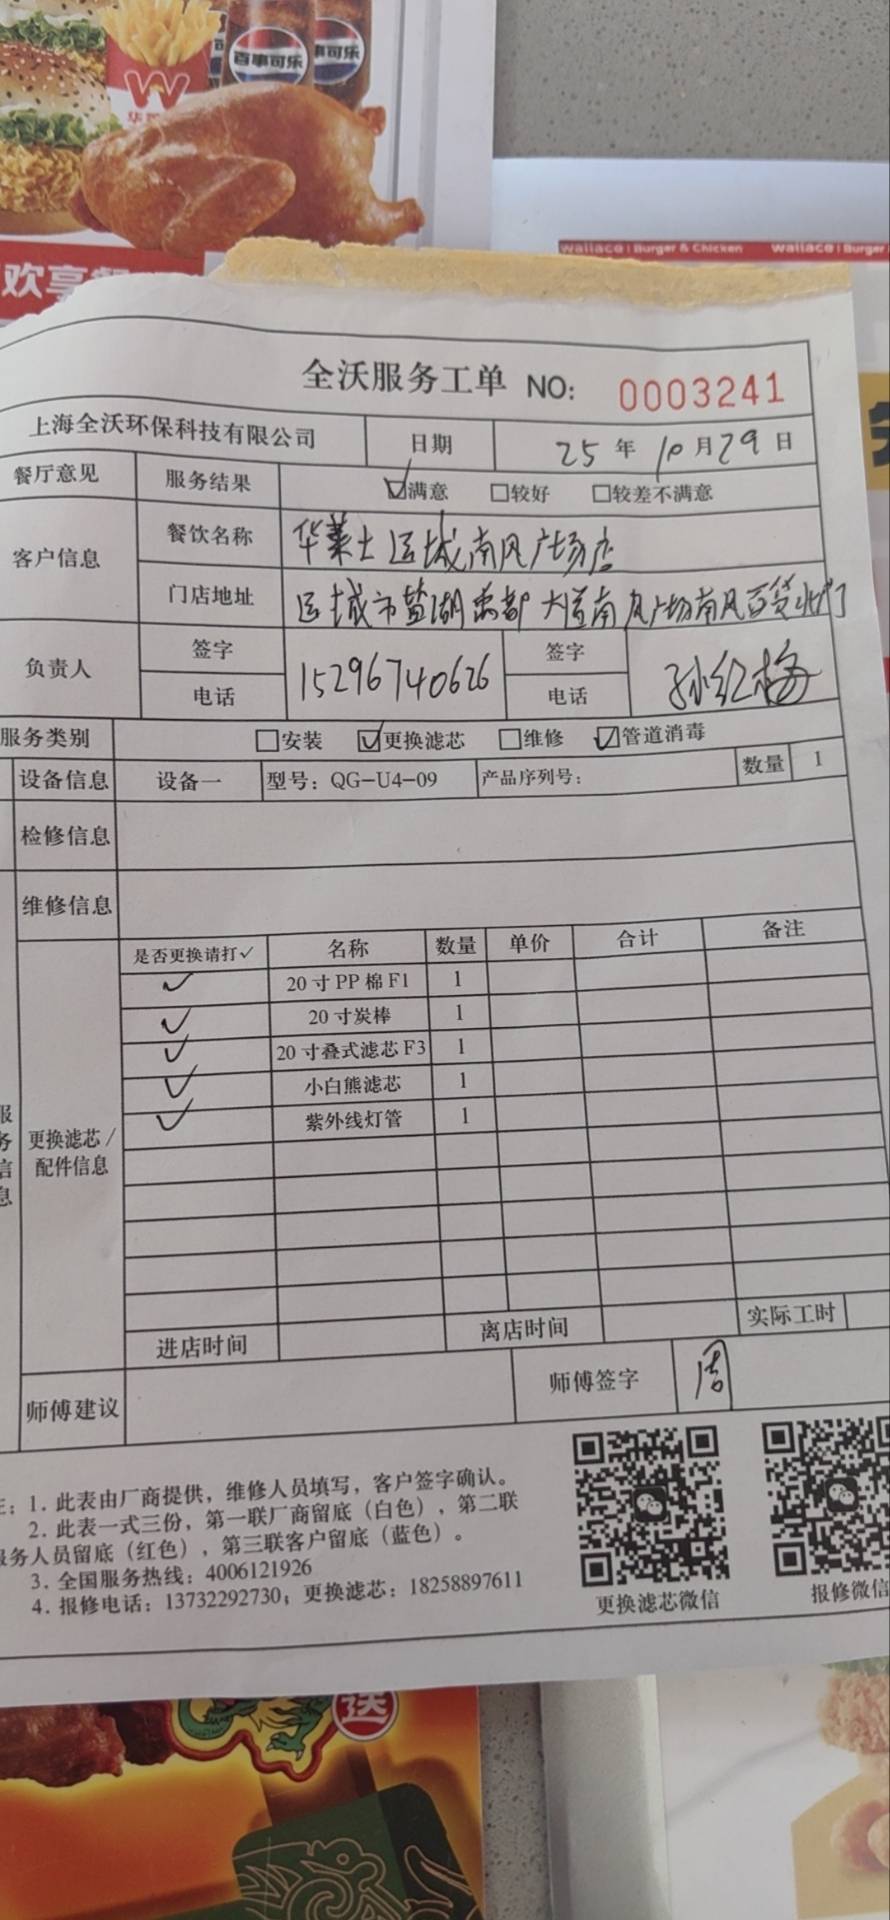 百事可乐
事可乐
W
欢享餐
wallace | Burger & Chicken wallace | Burger
全沃服务工单 NO: 0003241
上海全沃环保科技有限公司 日期 25年10月29日
餐厅意见 服务结果 ☑满意 □较好 □较差不满意
客户信息 餐饮名称 华莱士运城南风广场店
门店地址 运城市盐湖禹都大道南风广场南风百货北门
负责人 签字 电话 15296740626 签字 电话 孙红梅
服务类别 □安装 ☑更换滤芯 □维修 ☑管道消毒
设备信息 设备一 型号：QG-U4-09 产品序列号： 数量 1
检修信息
维修信息
服务信息
更换滤芯/配件信息
是否更换请打✓ 名称 数量 单价 合计 备注
✓ 20寸PP棉F1 1
✓ 20寸炭棒 1
✓ 20寸叠式滤芯F3 1
✓ 小白熊滤芯 1
✓ 紫外线灯管 1
进店时间 离店时间 实际工时
师傅建议 师傅签字 周
注：1. 此表由厂商提供，维修人员填写，客户签字确认。
2. 此表一式三份，第一联厂商留底（白色），第二联
服务人员留底（红色），第三联客户留底（蓝色）。
3. 全国服务热线：4006121926
4. 报修电话：13732292730；更换滤芯：18258897611
更换滤芯微信 报修微信
送